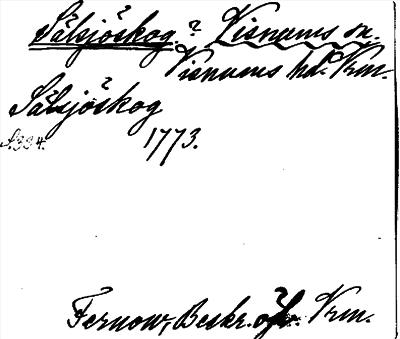 Sälsjöskog ? Visnums sn.
Visnums hd. Vrm.
Sälsjöskog
S. 334. 1773.
Fernow, Beskr. öfv. Vrm.